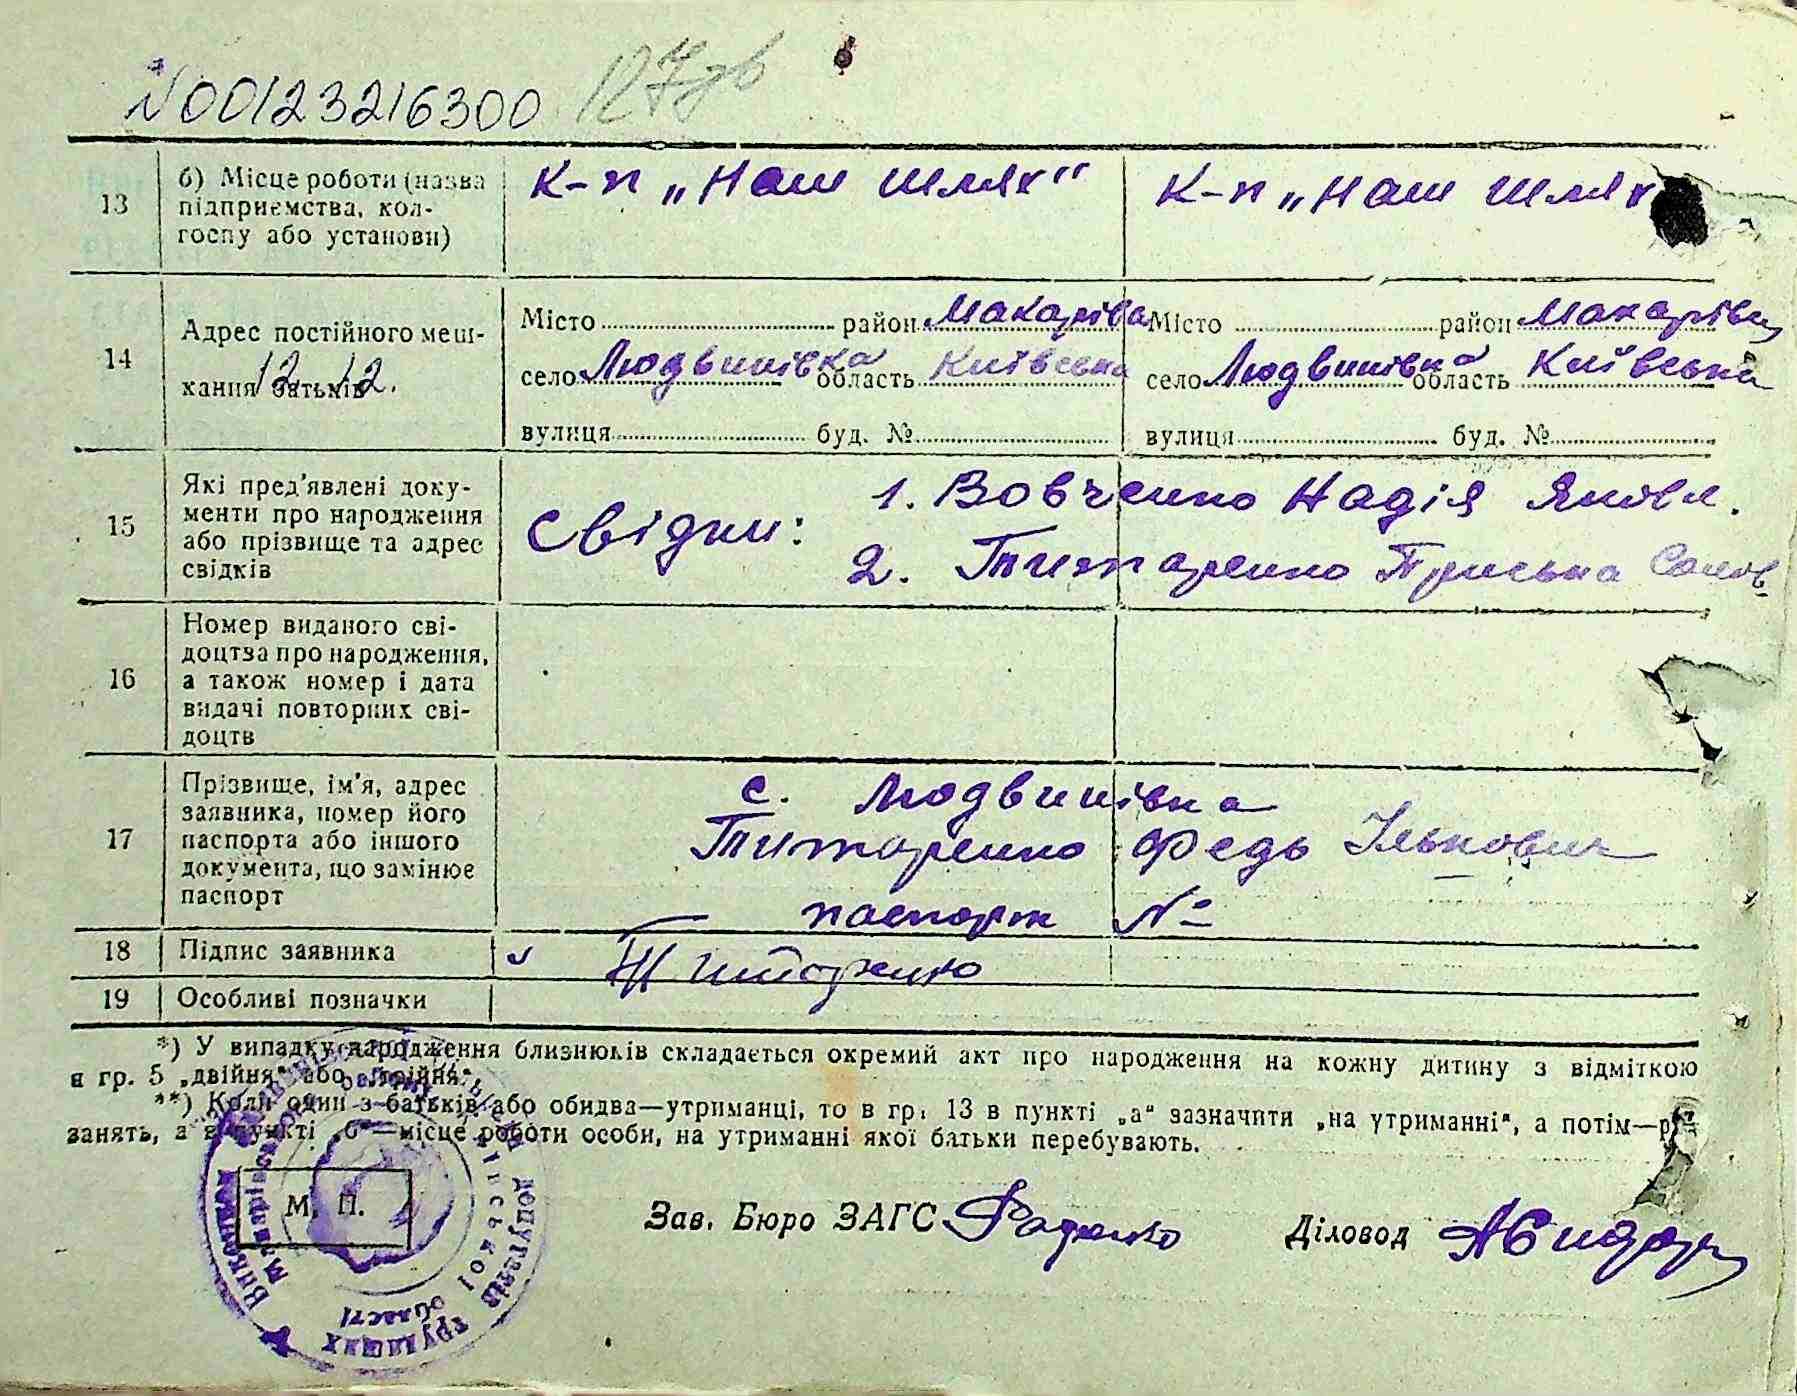 N00123216300 127зв
13 б) Місце роботи (назва підприємства, кол-госпу або установи) К-п „Наш шлях" К-п „Наш шлях
14 Адрес постійного меш-
кання батьків 12 12.
Місто район Макарівс Місто район Макарівсь
село Людвинівка область Київська село Людвинівка область Київська
вулиця буд. № вулиця буд. №
15 Які пред'явлені доку-
менти про народження
або прізвище та адрес
свідків
Свідки: 1. Вовченко Надія Яковл.
2. Титаренко Приська Самов
16 Номер виданого сві-
доцтва про народження,
а також номер і дата
видачі повторних сві-
доцтв
17 Прізвище, ім'я, адрес
заявника, номер його
паспорта або іншого
документа, що замінює
паспорт
с. Людвинівка
Титаренко Федь Ількович
паспорт №
18 Підпис заявника Титаренко
19 Особливі позначки
*) У випадку народження близнюків складається окремий акт про народження на кожну дитину з відміткою
в гр. 5 „двійня" або „трійня".
**) Коли один з батьків або обидва—утриманці, то в гр. 13 в пункті „а" зазначити „на утриманні", а потім—р
занять, а в пункті „б"—місце роботи особи, на утриманні якої батьки перебувають.
М. П.
Зав. Бюро ЗАГС Діловод
Виконком депутатів трудящих області